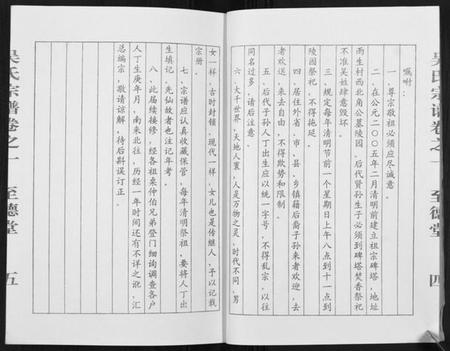 吴氏宗谱卷之一　至德堂　四
嘱咐：
一、尊宗敬祖必须应尽诚意。
二、在公元二００五年二月清明前建立祖宗碑塔，地址
雨生村西北角公墓陵园，后代贤孙生子必须到碑塔焚香祭祀
不准吴姓肆意毁坏。
三、规定每年清明节前一个星期日上午八点到十一点到
陵园祭祀，不得拖延。
四、居住外省、市、县、乡镇籍后裔子孙来者欢迎，去
者欢送，来去自由，不得欺势和限制。
五、后代子孙人丁出生应以统一字号，不得乱宗，以往
同名过多，请后注意。
六、大千世界，天地人寰，人是万物之灵，时代不同，男
女一样，古时封锁，现代一样，女儿也是传继人，予以记载
宗册。
七、宗谱应认真收藏保管，每年清明祭祖，要将人丁出
生填记，先仙故者也注记年考。
八、此届续接修，经各祖来仲伯兄弟登门细询调查各户
人丁生庚年月，南来北往，历经一年时间还有不详之说，汇
总编宗，敬请谅解，待后斟误订正。
吴氏宗谱卷之一　至德堂　五